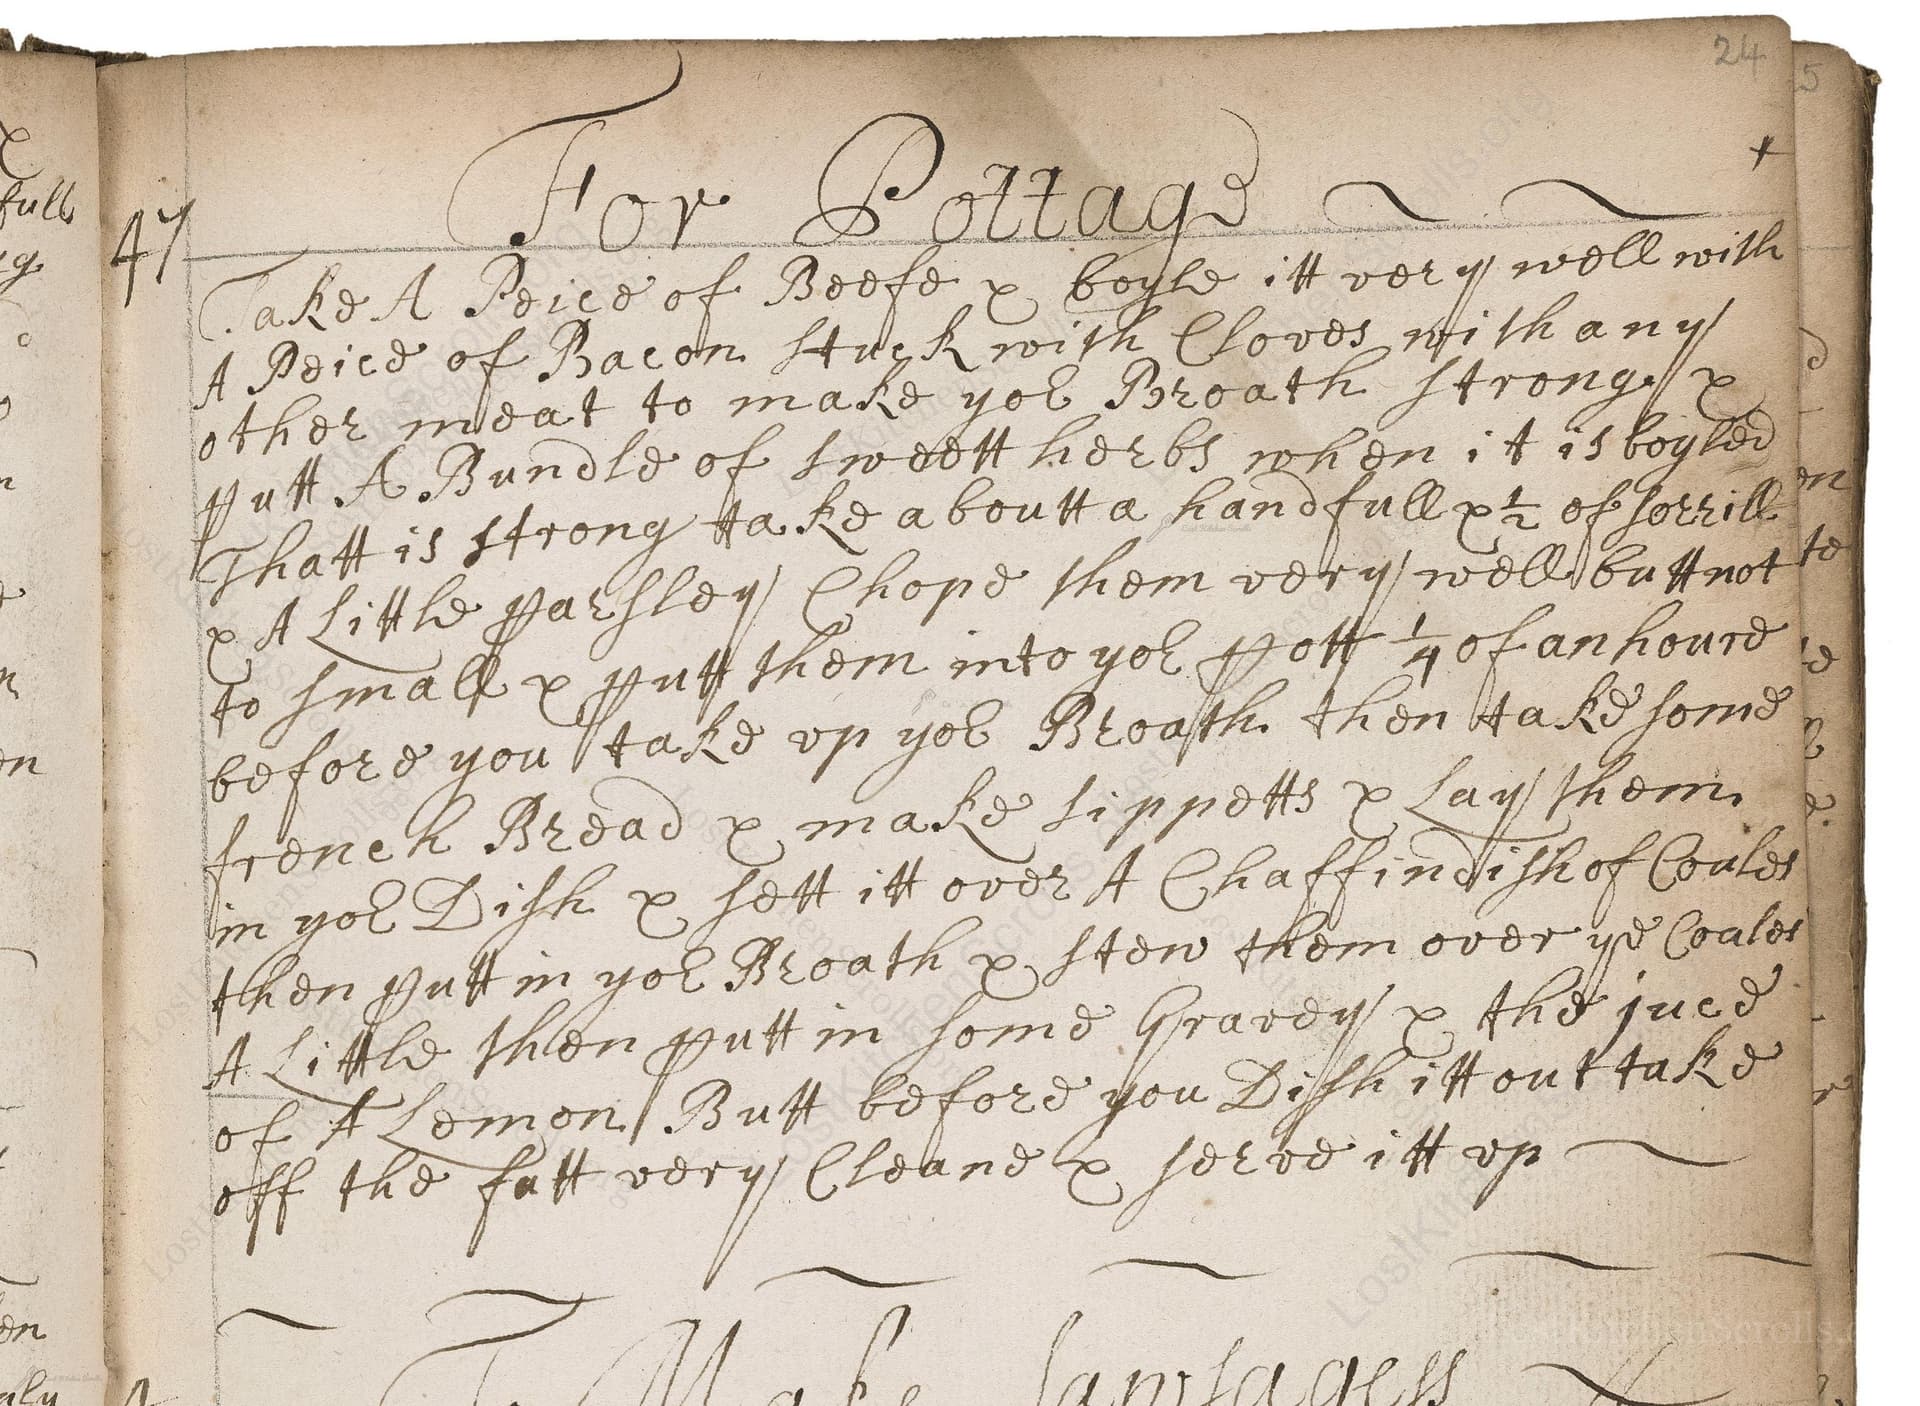 24
5
For Pottage
47
Take A Peice of Beefe & boyle itt very well with
A Peice of Bacon stuck with Cloves with any
other meat to make yor Broath strong &
putt A Bundle of sweett herbs when it is boyled
Thatt is strong take aboutt a handfull & ½ of sorrill
& A Little parsley Chope them very well butt not
to small & putt them into yor pott ¼ of an houre
before you take vp yor Broath then take some
french Bread & make sippetts & Lay them
in yor Dish & sett itt over A Chaffindish of Coales
then putt in yor Broath & stew them over ye Coales
A Little then putt in some Gravey & the juce
of A Lemon Butt before you Dish itt out take
off the fatt very Cleane & serve itt vp
To Make Sawsagess